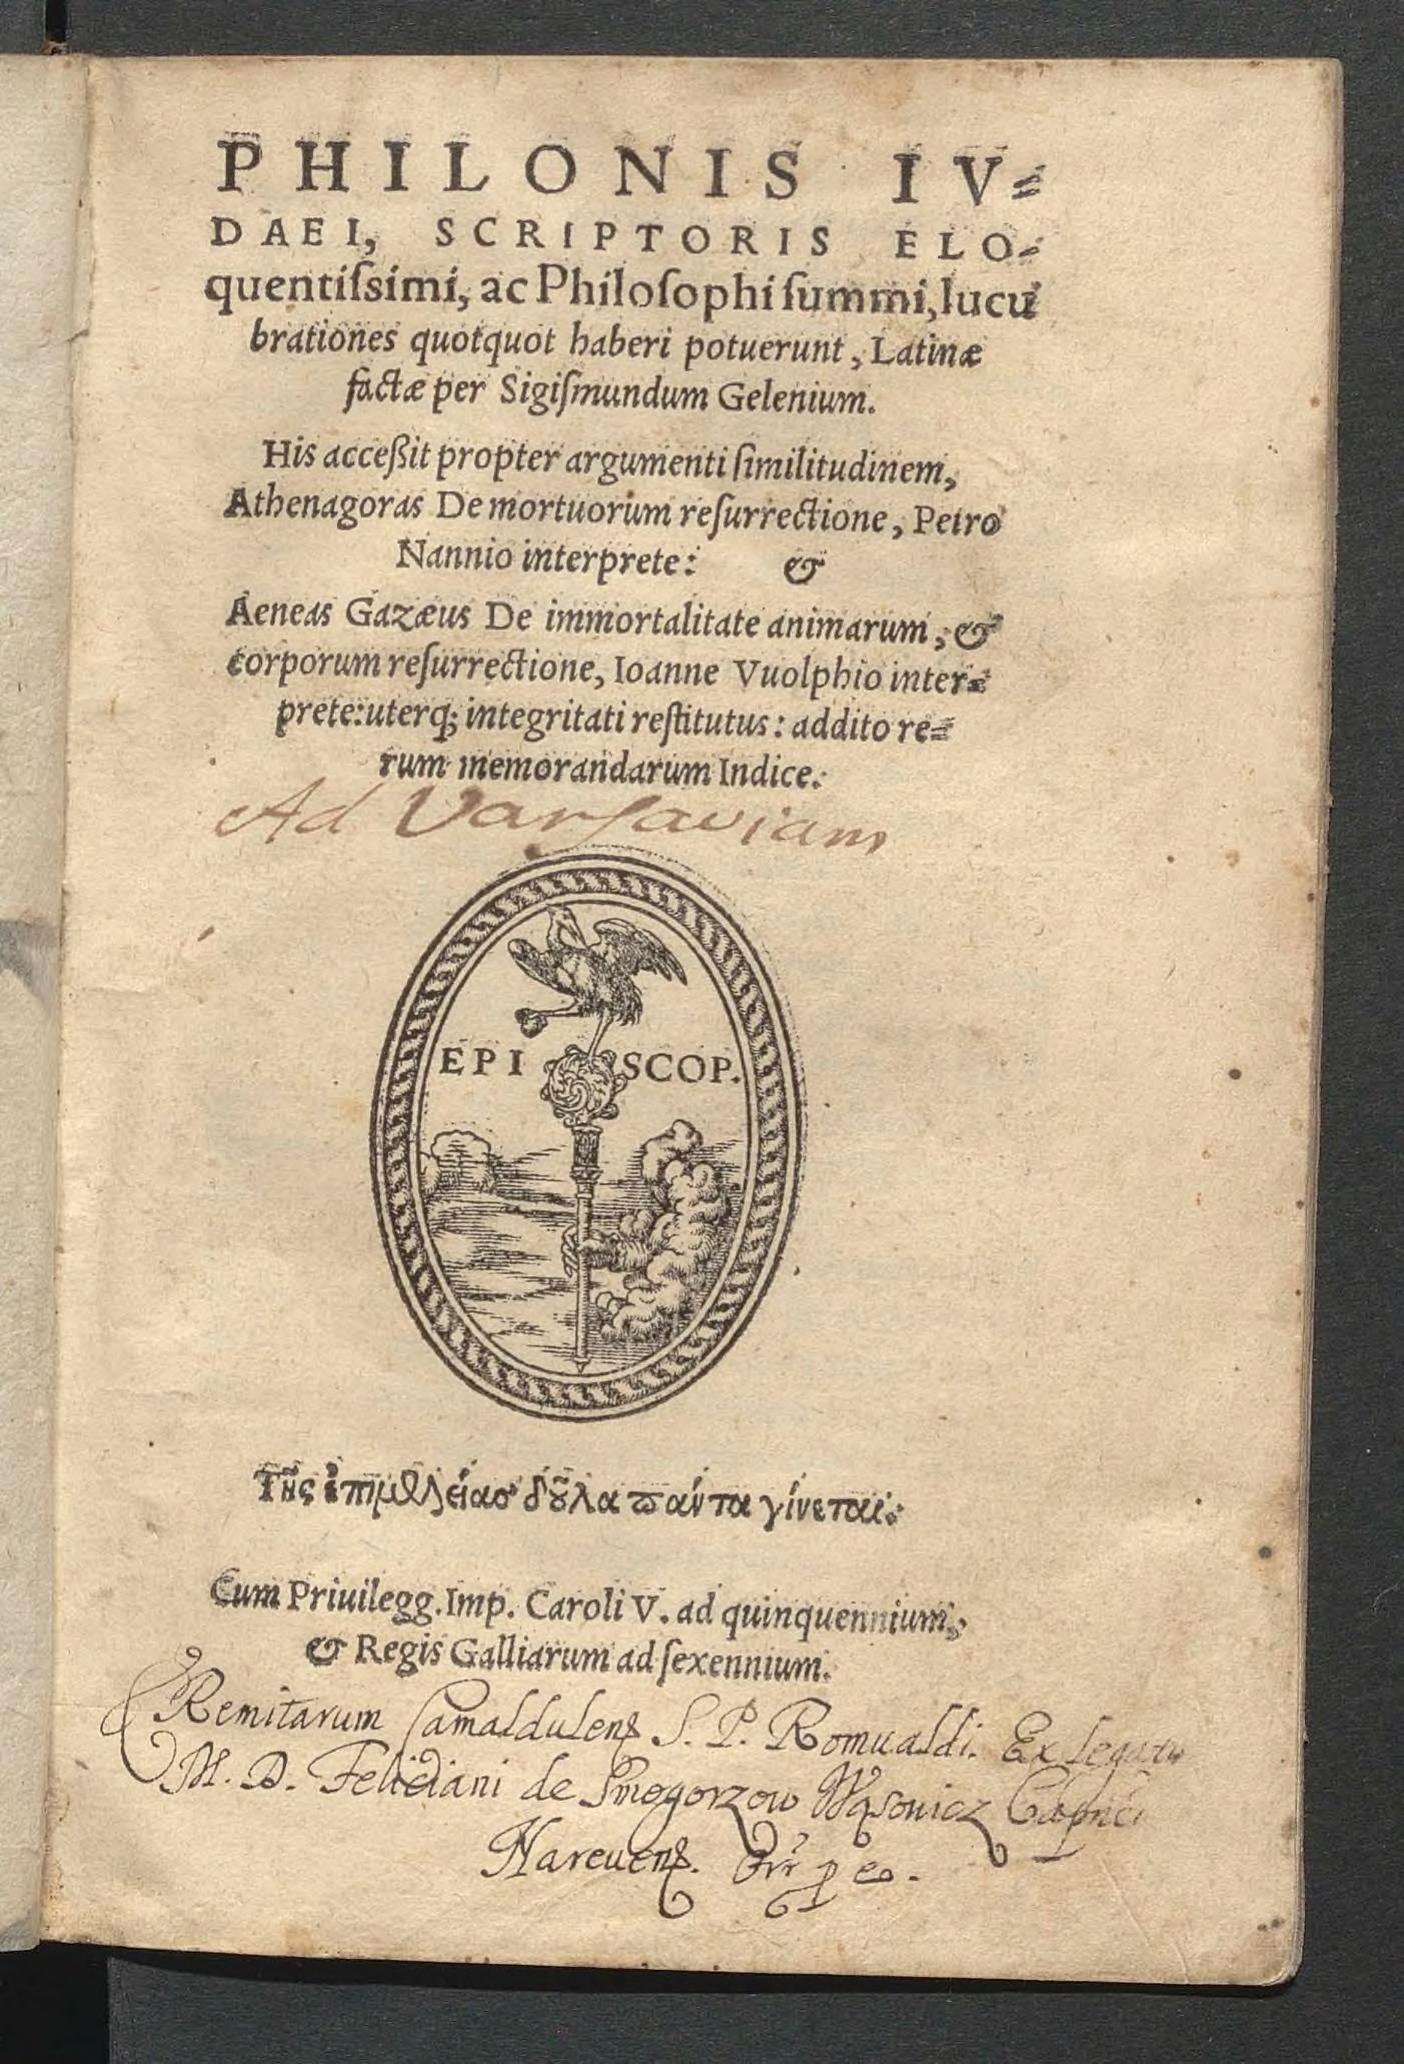 PHILONIS IV=
DAEI, SCRIPTORIS ELO=
quentiſsimi, ac Philoſophi ſummi, lucu
brationes quotquot haberi potuerunt, Latinæ
factæ per Sigiſmundum Gelenium.
His acceßit propter argumenti ſimilitudinem,
Athenagoras De mortuorum reſurrectione, Petro
Nannio interprete: &
Aeneas Gazæus De immortalitate animarum, &
corporum reſurrectione, Ioanne Vuolphio inter=
prete: uterq; integritati reſtitutus: addito re=
rum memorandarum Indice.
Ad Varſaviam
EPI SCOP.
Τῆς ἐπιμελείας δοῦλα πάντα γίνεται.
Cum Priuilegg. Imp. Caroli V. ad quinquennium,
& Regis Galliarum ad ſexennium.
Eremitarum Camaldulens S. P. Romualdi. Ex legatu
M. D. Feliciani de Smogorzow Wąsowicz
Narevens. Orr p eo.